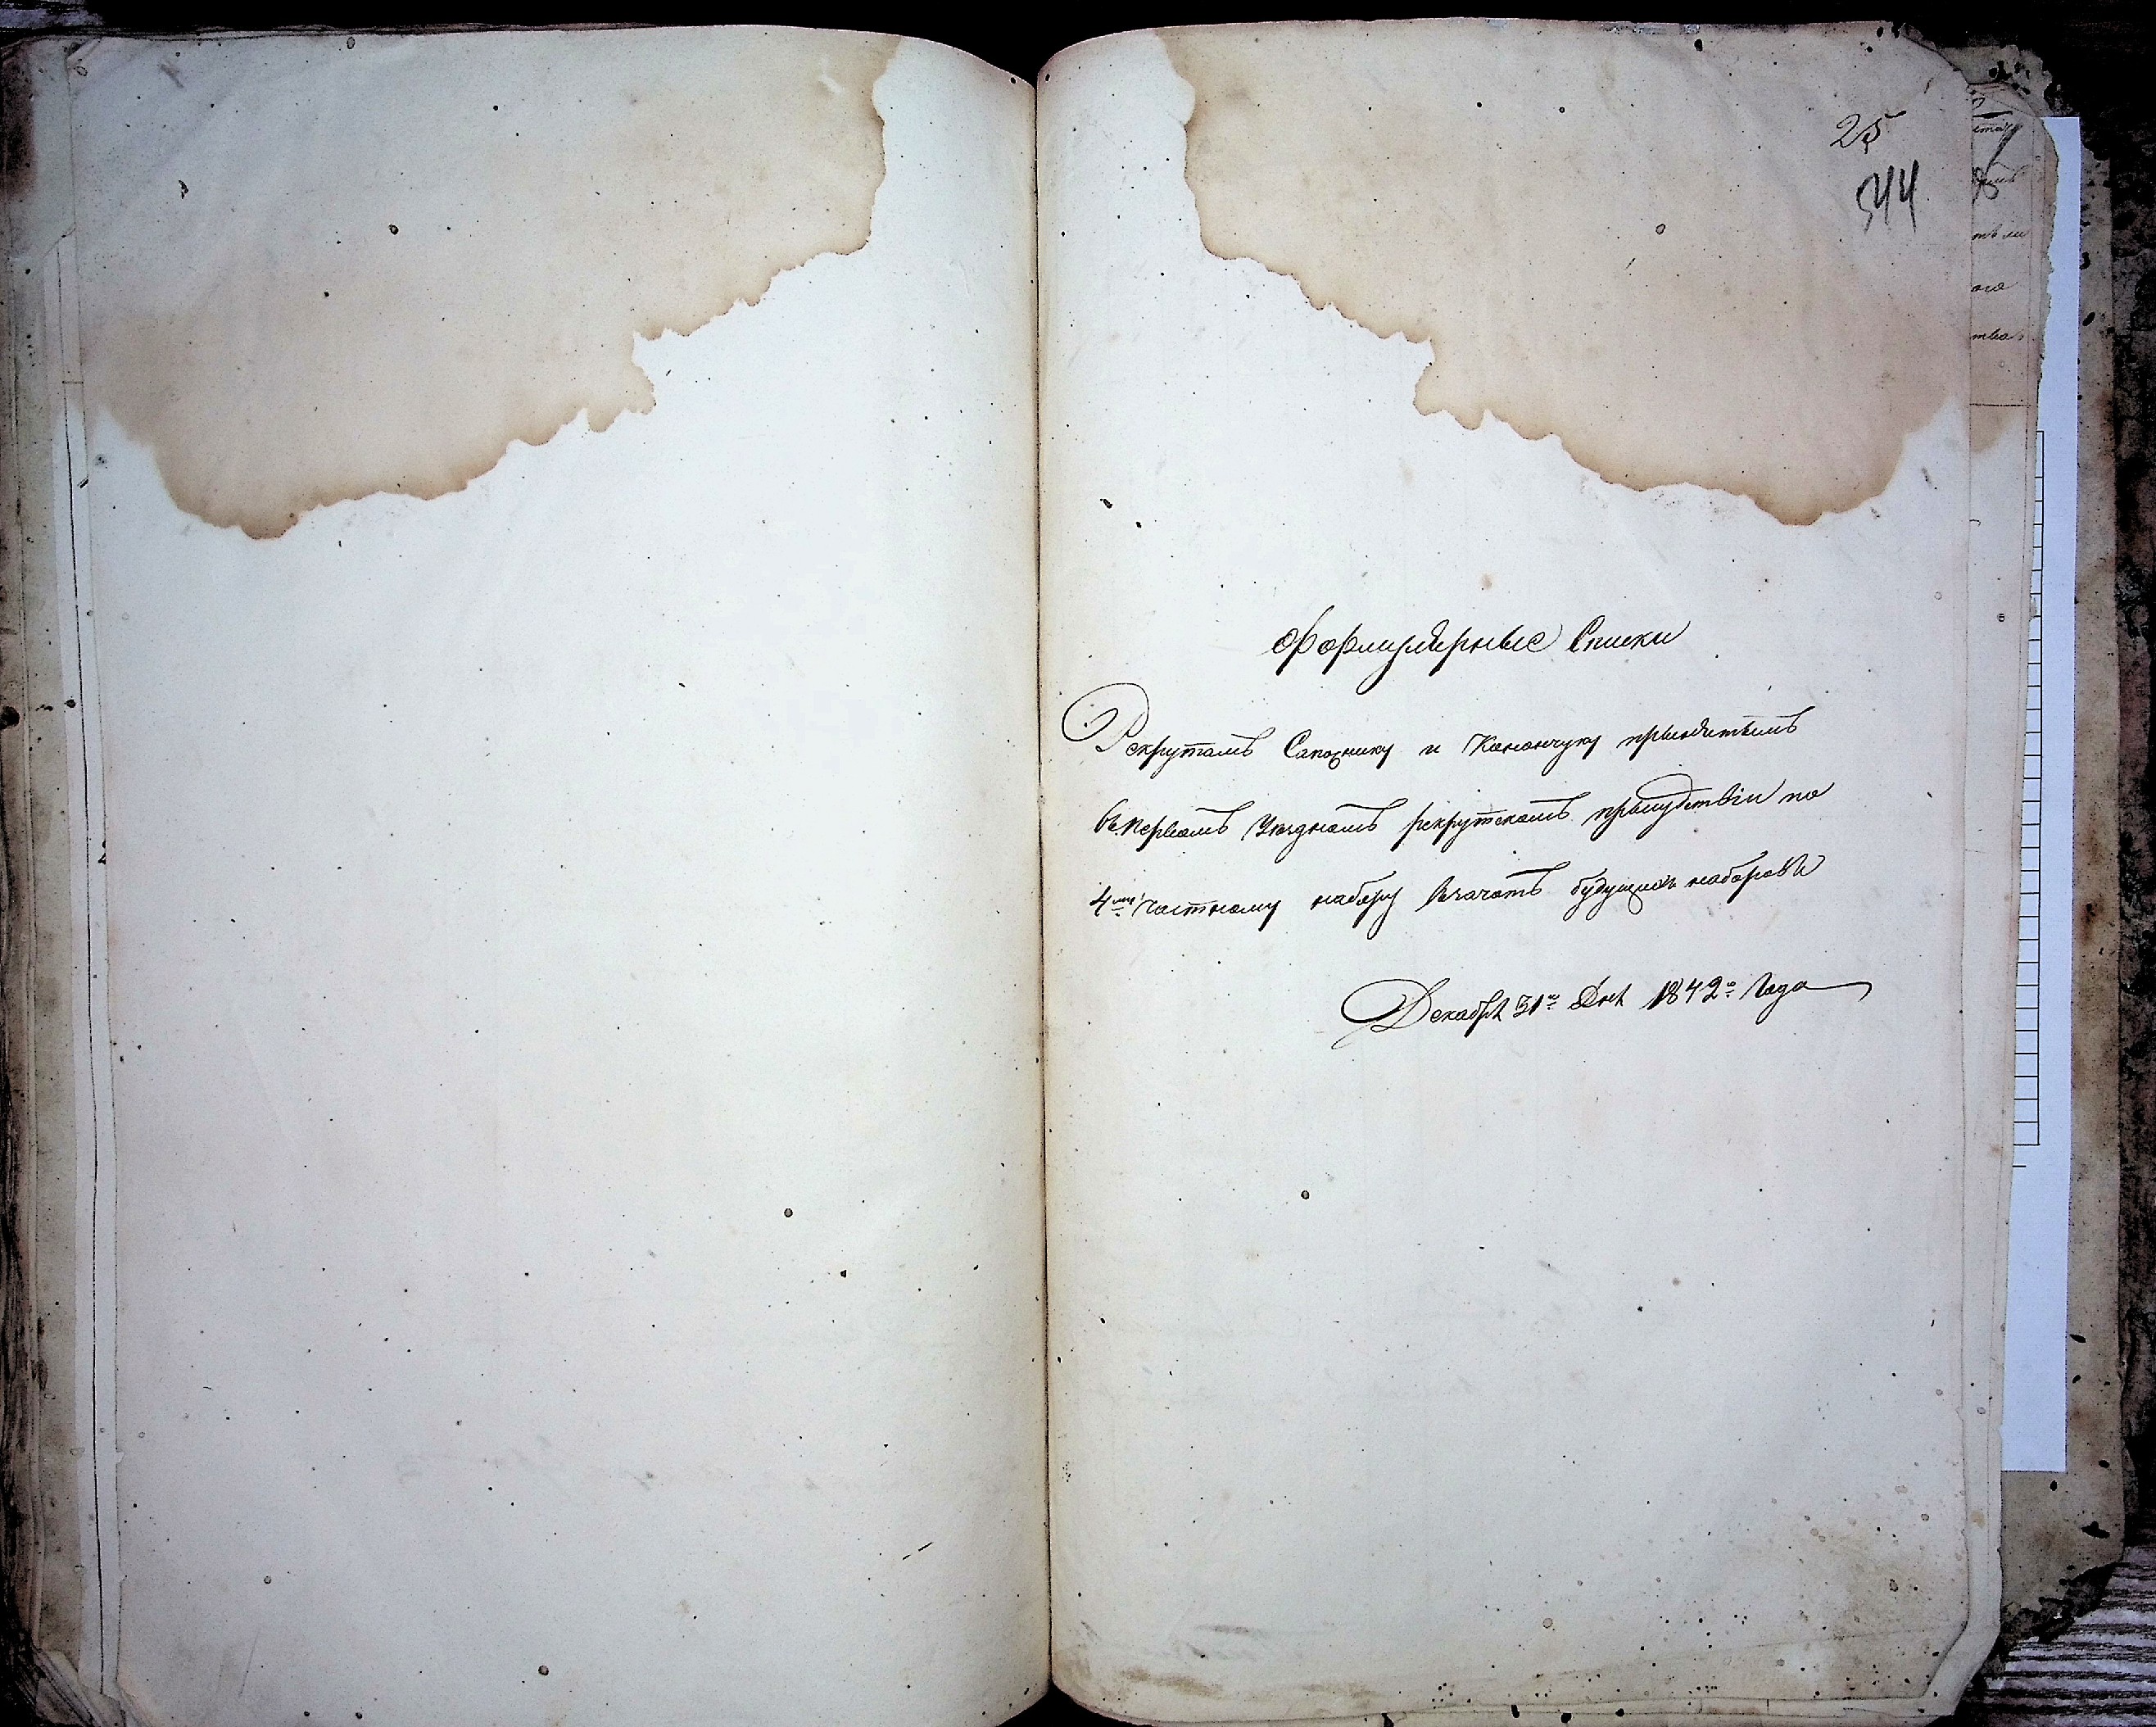 25
344
Формулярные Списки
Рекрутамъ Сапожнику и Канончуку принятымъ
въ Первомъ Уездномъ рекрутскомъ присудствіи по
4му частному набору взачотъ будущихъ наборовъ
Декабря 31го дня 1842го Года